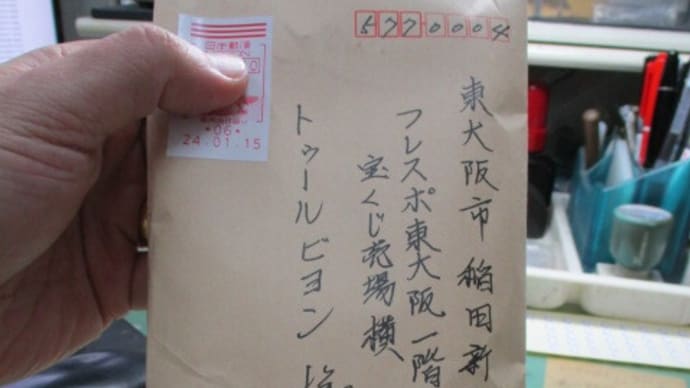 5770004
東大阪市 稲田新
フレスポ東大阪一階
宝くじ売場横
トゥールビヨン
日本郵便
・06・
24.01.15